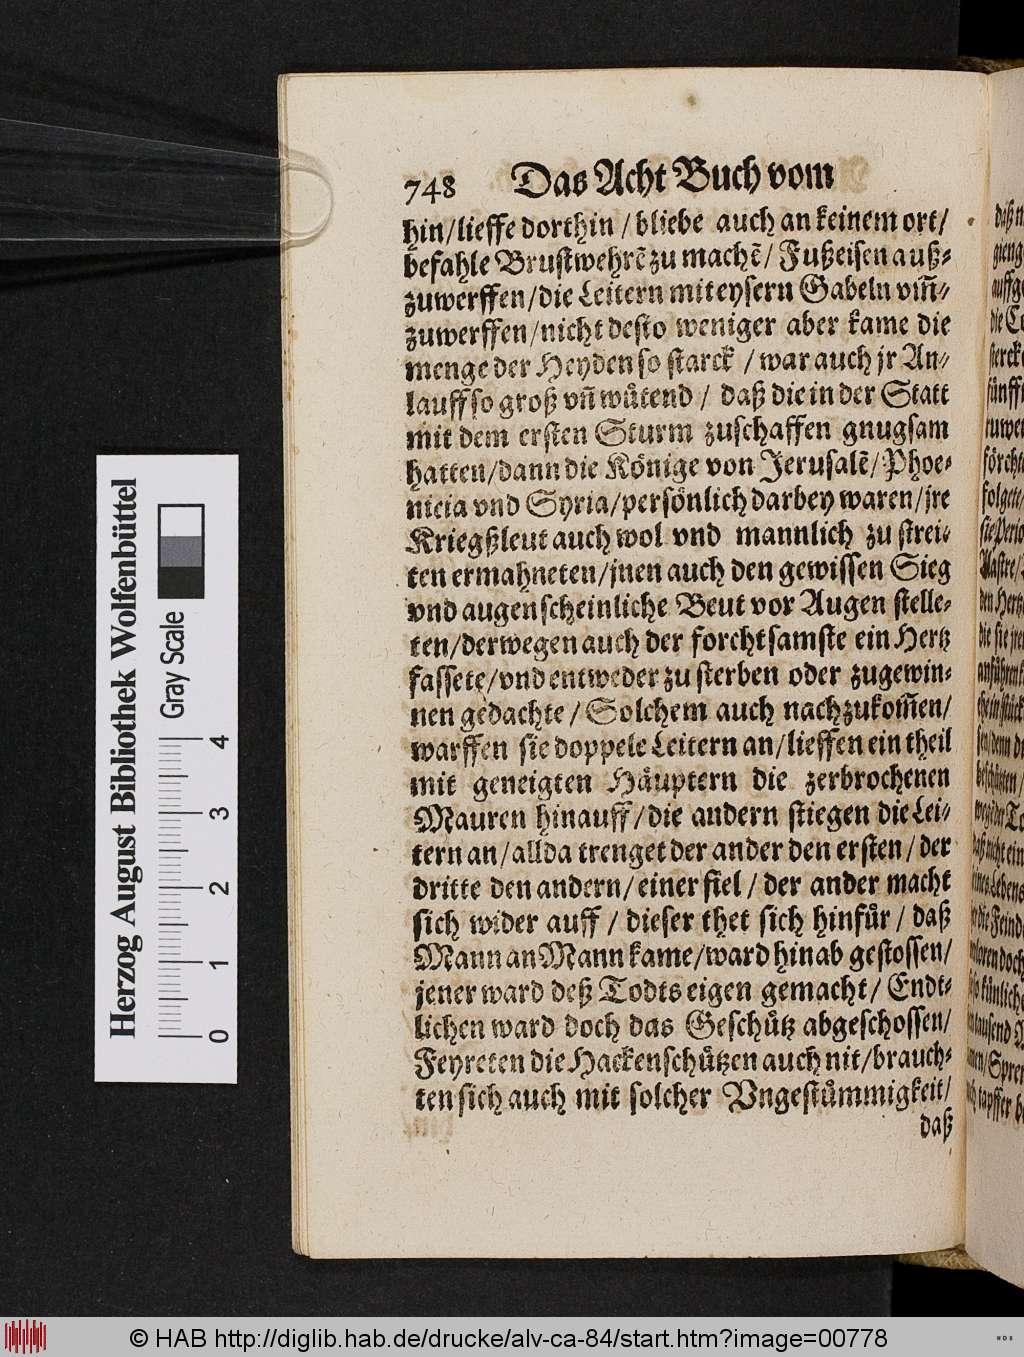 748 Das Acht Buch vom
hin/lieffe dorthin / bliebe auch an keinem ort/
befahle Brustwehrē zu machē/ Fußeisen auß-
zuwerffen/die Leitern mit eysern Gabeln vm̃-
zuwerffen/nicht desto weniger aber kame die
menge der Heyden so starck / war auch jr An-
lauff so groß vñ wütend / daß die in der Statt
mit dem ersten Sturm zuschaffen gnugsam
hatten/dann die Könige von Jerusalē/Phoe-
nicia vnd Syria/persönlich darbey waren/jre
Kriegßleut auch wol vnd mannlich zu strei-
ten ermahneten/jnen auch den gewissen Sieg
vnd augenscheinliche Beut vor Augen stelle-
ten/derwegen auch der forchtsamste ein Hertz
fassete/vnd entweder zu sterben oder zugewin-
nen gedachte / Solchem auch nachzukom̃en/
warffen sie doppele Leitern an/lieffen ein theil
mit geneigten Häuptern die zerbrochenen
Mauren hinauff/die andern stiegen die Lei-
tern an/allda trenget der ander den ersten/der
dritte den andern/einer fiel / der ander macht
sich wider auff / dieser thet sich hinfür / daß
Mann an Mann kame/ward hinab gestossen/
jener ward deß Todts eigen gemacht/ Endt-
lichen ward doch das Geschütz abgeschossen/
Feyreten die Hackenschützen auch nit/brauch-
ten sich auch mit solcher Vngestümmigkeit/
daß
Herzog August Bibliothek Wolfenbüttel
Gray Scale
0 1 2 3 4
© HAB http://diglib.hab.de/drucke/alv-ca-84/start.htm?image=00778